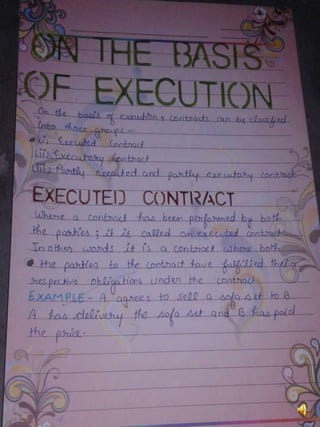 ON THE BASIS
OF EXECUTION
On the basis of execution, contracts can be classified
into three groups -
(i) Executed Contract
(ii) Executory Contract
(iii) Partly executed and partly executory contract
EXECUTED CONTRACT
Where a contract has been performed by both
the parties; it is called an executed contract.
In other words it is a contract where both
the parties to the contract have fulfilled their
respective obligations under the contract
EXAMPLE - A agrees to sell a sofa set to B
A has delivery the sofa set and B has paid
the price.